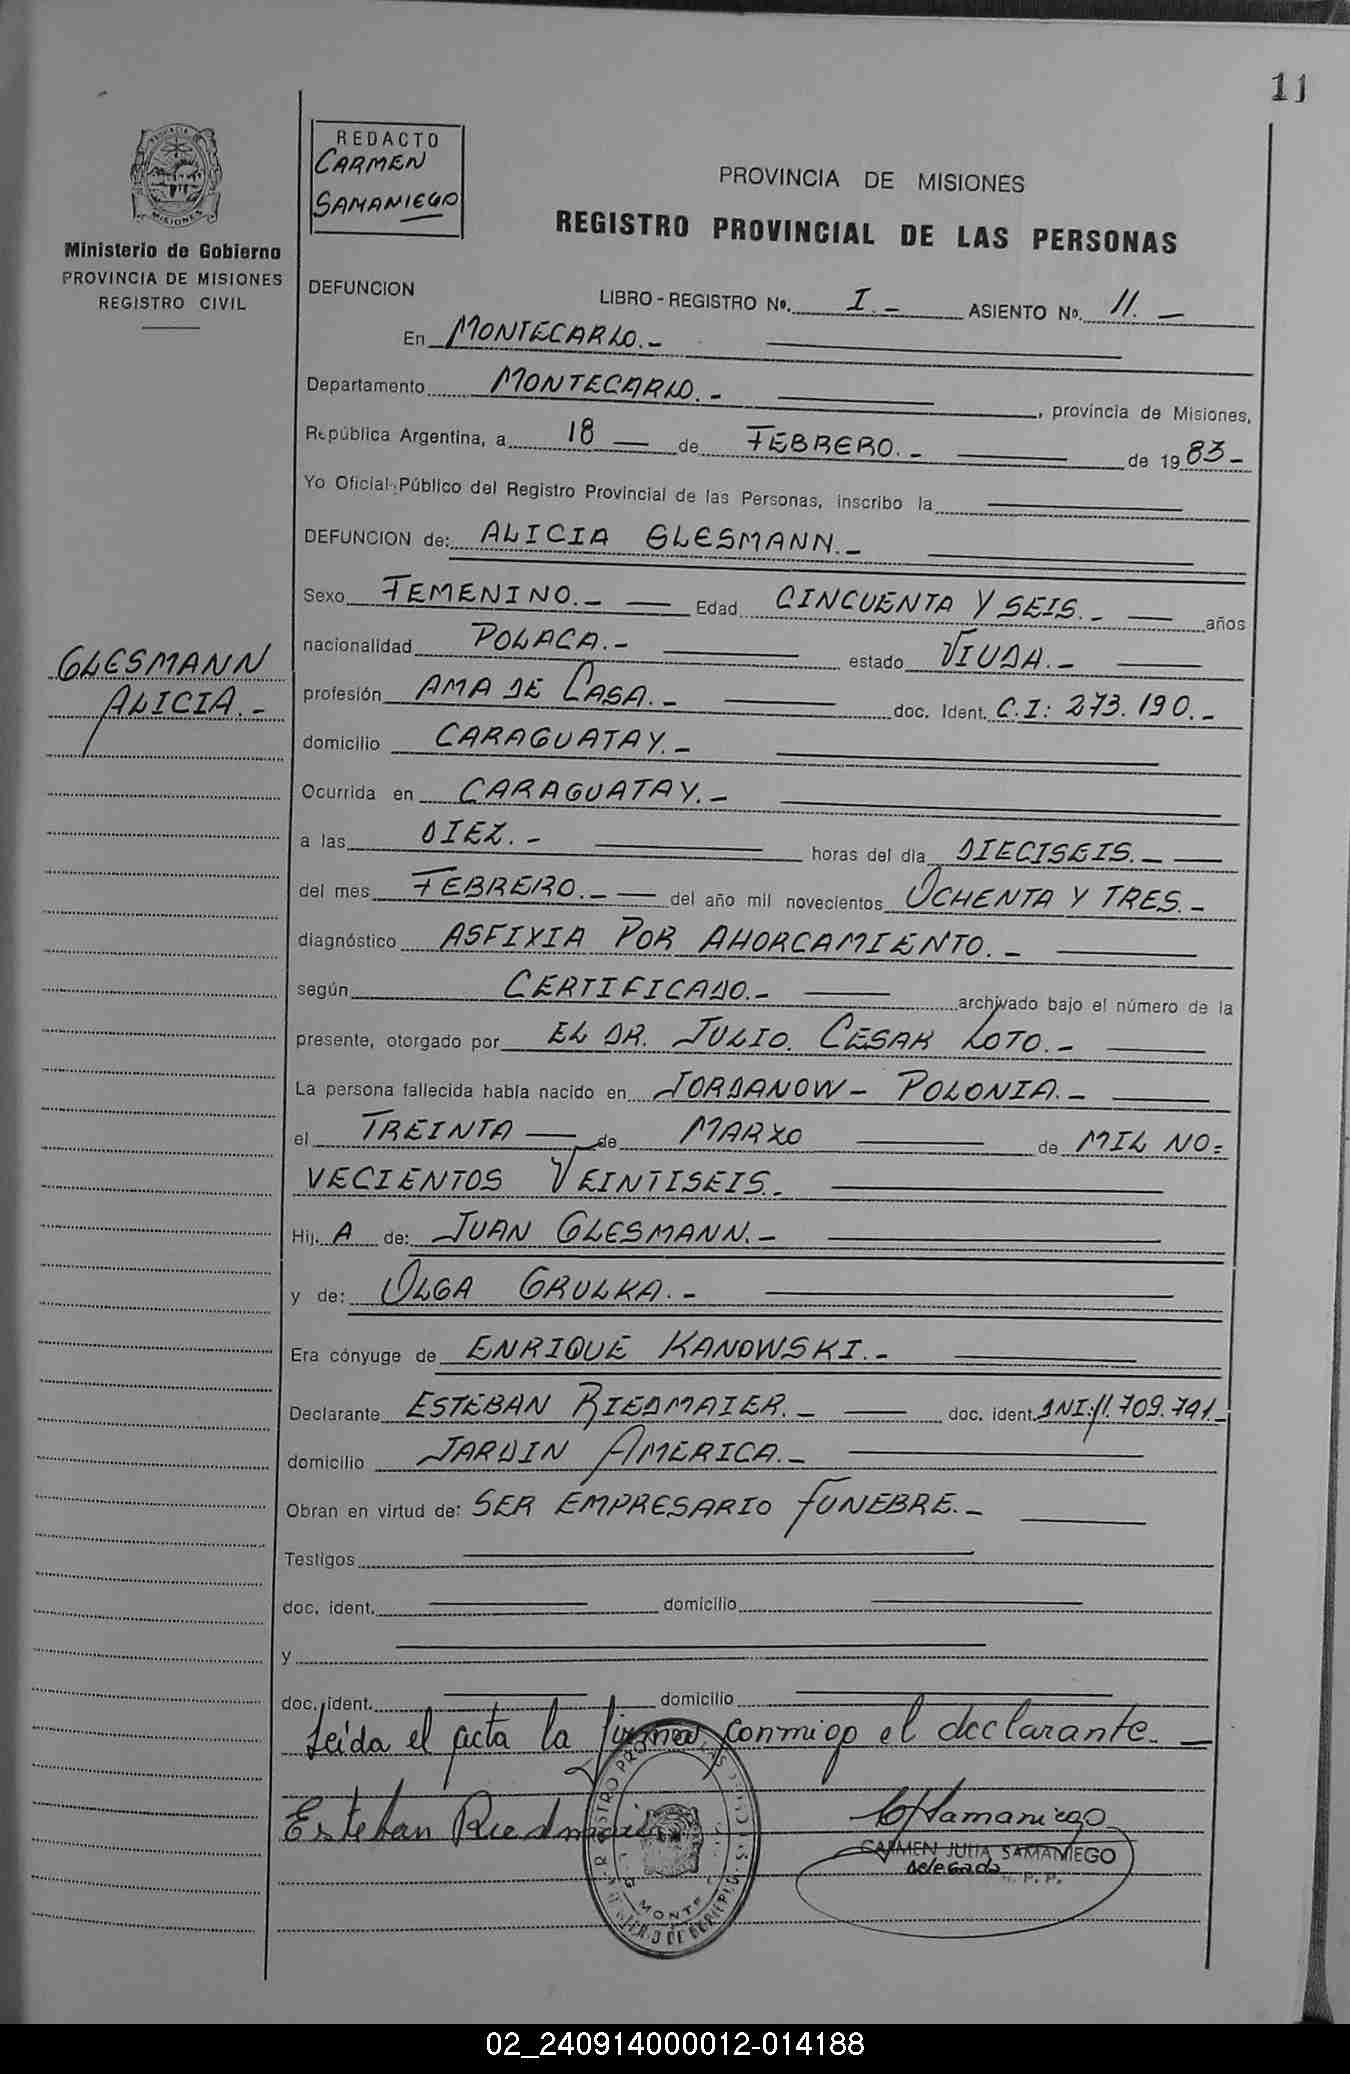 11
REDACTO
CARMEN
SAMANIEGO
PROVINCIA DE MISIONES
REGISTRO PROVINCIAL DE LAS PERSONAS
MISIONES
Ministerio de Gobierno
PROVINCIA DE MISIONES
REGISTRO CIVIL
DEFUNCION LIBRO-REGISTRO Nº. I.- ASIENTO Nº. 11.-
En MONTECARLO.-
Departamento MONTECARLO.- , provincia de Misiones,
República Argentina, a 18 de FEBRERO.- de 1983-
Yo Oficial Público del Registro Provincial de las Personas, inscribo la
DEFUNCION de: ALICIA GLESMANN.-
Sexo FEMENINO.- Edad CINCUENTA Y SEIS.- años
nacionalidad POLACA.- estado VIUDA.-
GLESMANN
ALICIA.-
profesión AMA DE CASA.- doc. Ident. C.I: 273.190.-
domicilio CARAGUATAY.-
Ocurrida en CARAGUATAY.-
a las DIEZ.- horas del día DIECISEIS.-
del mes FEBRERO.- del año mil novecientos OCHENTA Y TRES.-
diagnóstico ASFIXIA POR AHORCAMIENTO.-
según CERTIFICADO.- archivado bajo el número de la
presente, otorgado por EL DR. JULIO CESAR LOTO.-
La persona fallecida había nacido en JORDANOW - POLONIA.-
el TREINTA de MARZO de MIL NO=
VECIENTOS VEINTISEIS.-
Hij. A de: JUAN GLESMANN.-
y de: OLGA GRULKA.-
Era cónyuge de ENRIQUE KANOWSKI.-
Declarante ESTEBAN RIEDMAIER.- doc. ident. DNI: 11.709.741.-
domicilio JARDIN AMERICA.-
Obran en virtud de: SER EMPRESARIO FUNEBRE.-
Testigos
doc. ident. domicilio
y
doc. ident. domicilio
Leída el acta la firma conmigo el declarante.-
Esteban Riedmaier
CARMEN JULIA SAMANIEGO
Delegada R. P. P.
02_240914000012-014188